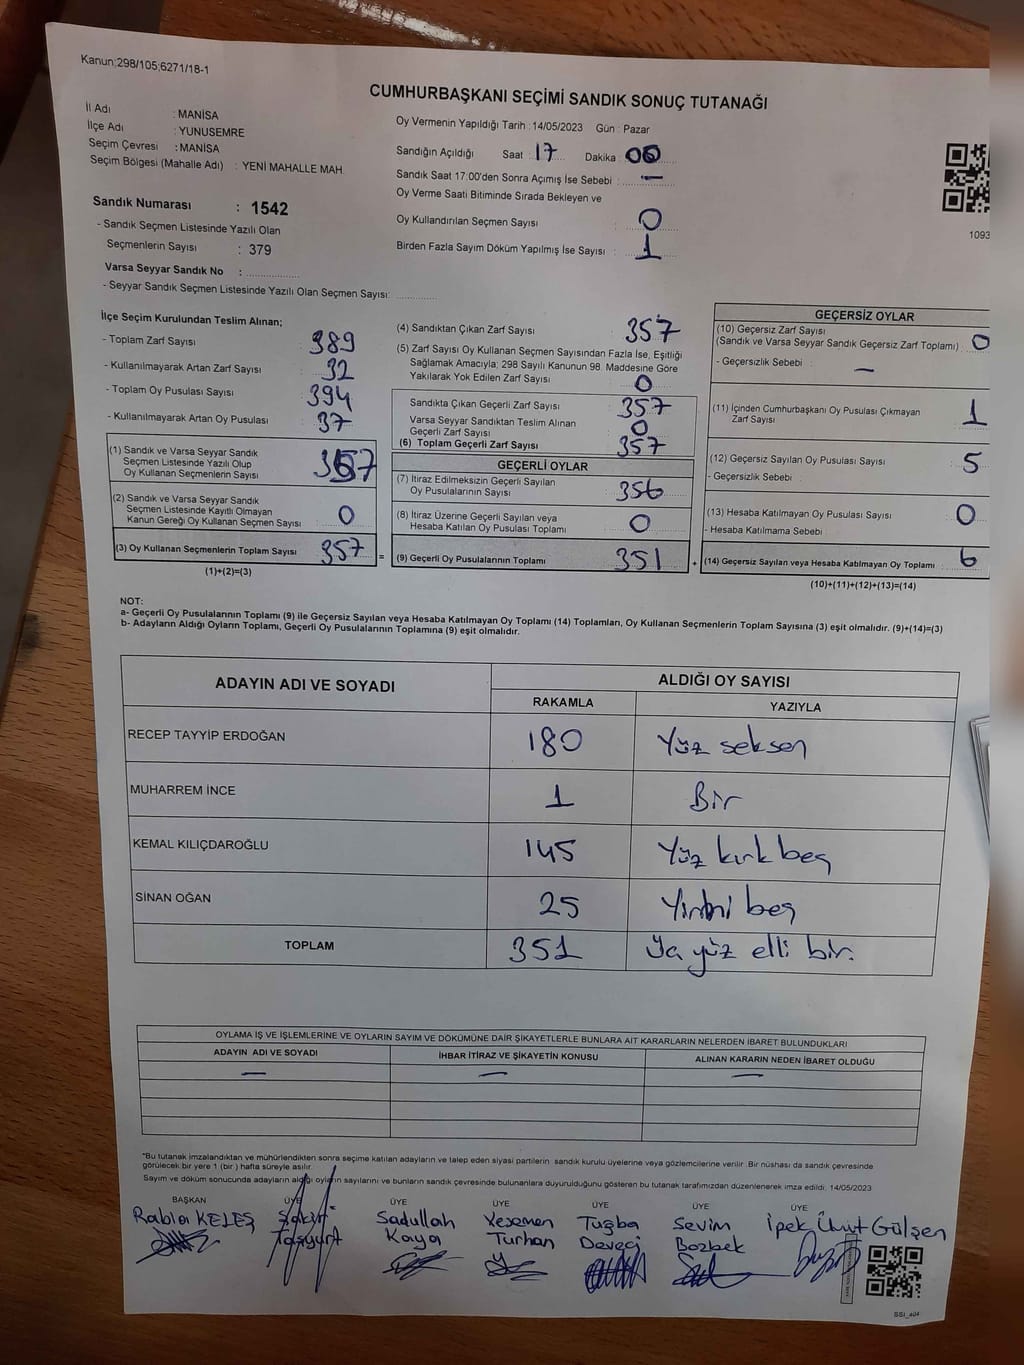 Kanun;298/105;6271/18-1
CUMHURBAŞKANI SEÇİMİ SANDIK SONUÇ TUTANAĞI
İl Adı : MANİSA
İlçe Adı : YUNUSEMRE
Seçim Çevresi : MANİSA
Seçim Bölgesi (Mahalle Adı) : YENİ MAHALLE MAH.
Sandık Numarası : 1542
- Sandık Seçmen Listesinde Yazılı Olan
Seçmenlerin Sayısı : 379
Varsa Seyyar Sandık No : ..............
- Seyyar Sandık Seçmen Listesinde Yazılı Olan Seçmen Sayısı: ..........
Oy Vermenin Yapıldığı Tarih : 14/05/2023 Gün : Pazar
Sandığın Açıldığı Saat : 17 Dakika : 00
Sandık Saat 17:00'den Sonra Açımış İse Sebebi : —
Oy Verme Saati Bitiminde Sırada Bekleyen ve
Oy Kullandırılan Seçmen Sayısı : 0
Birden Fazla Sayım Döküm Yapılmış İse Sayısı : 1
1093
İlçe Seçim Kurulundan Teslim Alınan;
- Toplam Zarf Sayısı : 389
- Kullanılmayarak Artan Zarf Sayısı : 32
- Toplam Oy Pusulası Sayısı : 394
- Kullanılmayarak Artan Oy Pusulası : 37
(1) Sandık ve Varsa Seyyar Sandık
Seçmen Listesinde Yazılı Olup
Oy Kullanan Seçmenlerin Sayısı : 357
(2) Sandık ve Varsa Seyyar Sandık
Seçmen Listesinde Kayıtlı Olmayan
Kanun Gereği Oy Kullanan Seçmen Sayısı : 0
(3) Oy Kullanan Seçmenlerin Toplam Sayısı : 357
(1)+(2)=(3)
(4) Sandıktan Çıkan Zarf Sayısı : 357
(5) Zarf Sayısı Oy Kullanan Seçmen Sayısından Fazla İse, Eşitliği
Sağlamak Amacıyla; 298 Sayılı Kanunun 98. Maddesine Göre
Yakılarak Yok Edilen Zarf Sayısı : 0
Sandıkta Çıkan Geçerli Zarf Sayısı : 357
Varsa Seyyar Sandıktan Teslim Alınan
Geçerli Zarf Sayısı : 0
(6) Toplam Geçerli Zarf Sayısı : 357
GEÇERLİ OYLAR
(7) İtiraz Edilmeksizin Geçerli Sayılan
Oy Pusulalarının Sayısı : 356
(8) İtiraz Üzerine Geçerli Sayılan veya
Hesaba Katılan Oy Pusulası Toplamı : 0
(9) Geçerli Oy Pusulalarının Toplamı : 351
=
+
GEÇERSİZ OYLAR
(10) Geçersiz Zarf Sayısı
(Sandık ve Varsa Seyyar Sandık Geçersiz Zarf Toplamı) : 0
- Geçersizlik Sebebi : —
(11) İçinden Cumhurbaşkanı Oy Pusulası Çıkmayan
Zarf Sayısı : 1
(12) Geçersiz Sayılan Oy Pusulası Sayısı : 5
- Geçersizlik Sebebi :
(13) Hesaba Katılmayan Oy Pusulası Sayısı : 0
- Hesaba Katılmama Sebebi :
(14) Geçersiz Sayılan veya Hesaba Katılmayan Oy Toplamı : 6
(10)+(11)+(12)+(13)=(14)
NOT:
a- Geçerli Oy Pusulalarının Toplamı (9) ile Geçersiz Sayılan veya Hesaba Katılmayan Oy Toplamı (14) Toplamları, Oy Kullanan Seçmenlerin Toplam Sayısına (3) eşit olmalıdır. (9)+(14)=(3)
b- Adayların Aldığı Oyların Toplamı, Geçerli Oy Pusulalarının Toplamına (9) eşit olmalıdır.
ADAYIN ADI VE SOYADI ALDIĞI OY SAYISI
RAKAMLA YAZIYLA
RECEP TAYYİP ERDOĞAN 180 Yüz seksen
MUHARREM İNCE 1 Bir
KEMAL KILIÇDAROĞLU 145 Yüz kırk beş
SİNAN OĞAN 25 Yirmi beş
TOPLAM 351 yüz elli bir.
OYLAMA İŞ VE İŞLEMLERİNE VE OYLARIN SAYIM VE DÖKÜMÜNE DAİR ŞİKAYETLERLE BUNLARA AİT KARARLARIN NELERDEN İBARET BULUNDUKLARI
ADAYIN ADI VE SOYADI İHBAR İTİRAZ VE ŞİKAYETİN KONUSU ALINAN KARARIN NEDEN İBARET OLDUĞU
— — —
*Bu tutanak imzalandıktan ve mühürlendikten sonra seçime katılan adayların ve talep eden siyasi partilerin sandık kurulu üyelerine veya gözlemcilerine verilir. Bir nüshası da sandık çevresinde
görülecek bir yere 1 (bir ) hafta süreyle asılır.
Sayım ve döküm sonucunda adayların aldığı oyların sayılarını ve bunların sandık çevresinde bulunanlara duyurulduğunu gösteren bu tutanak tarafımızdan düzenlenerek imza edildi. 14/05/2023
BAŞKAN ÜYE ÜYE ÜYE ÜYE ÜYE ÜYE
Rabia KELEŞ Şakir Sadullah Yesemen Tuğba Sevim İpek Ümit Gülşen
Taşyurt Kaya Turhan Deveci Bozbek